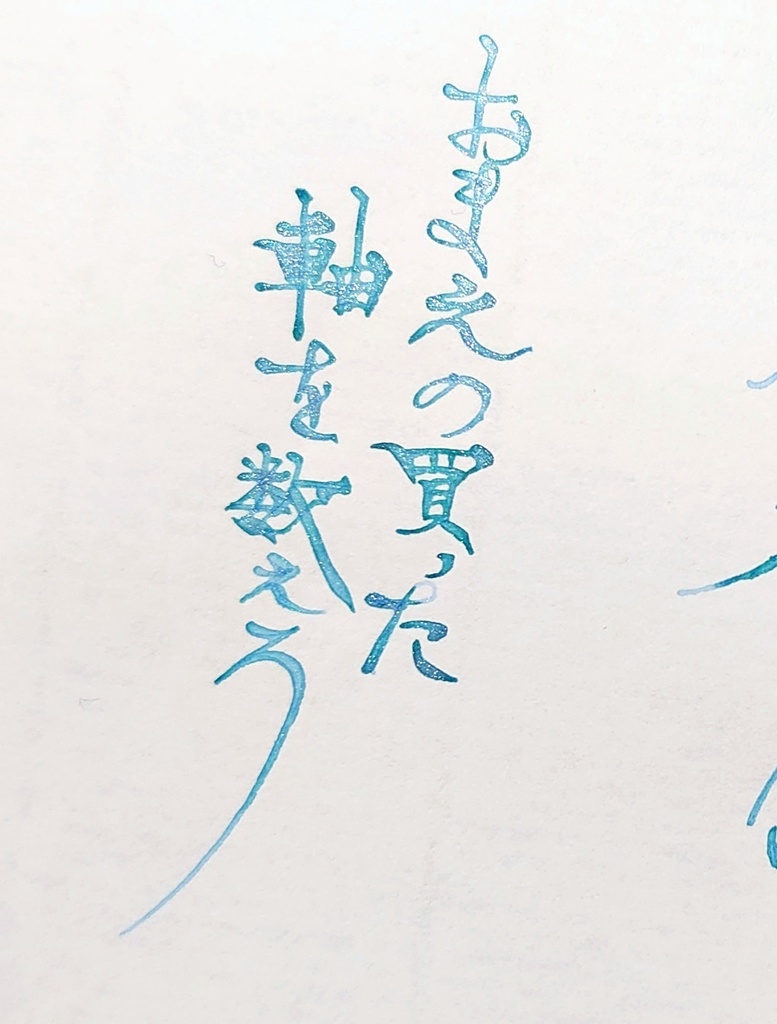 おまえの買った
軸を数えろ